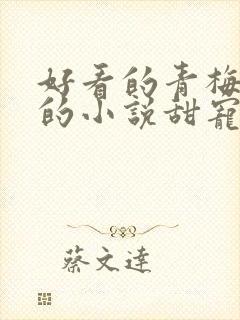 好看的青梅
的小说甜寵
蔡文達